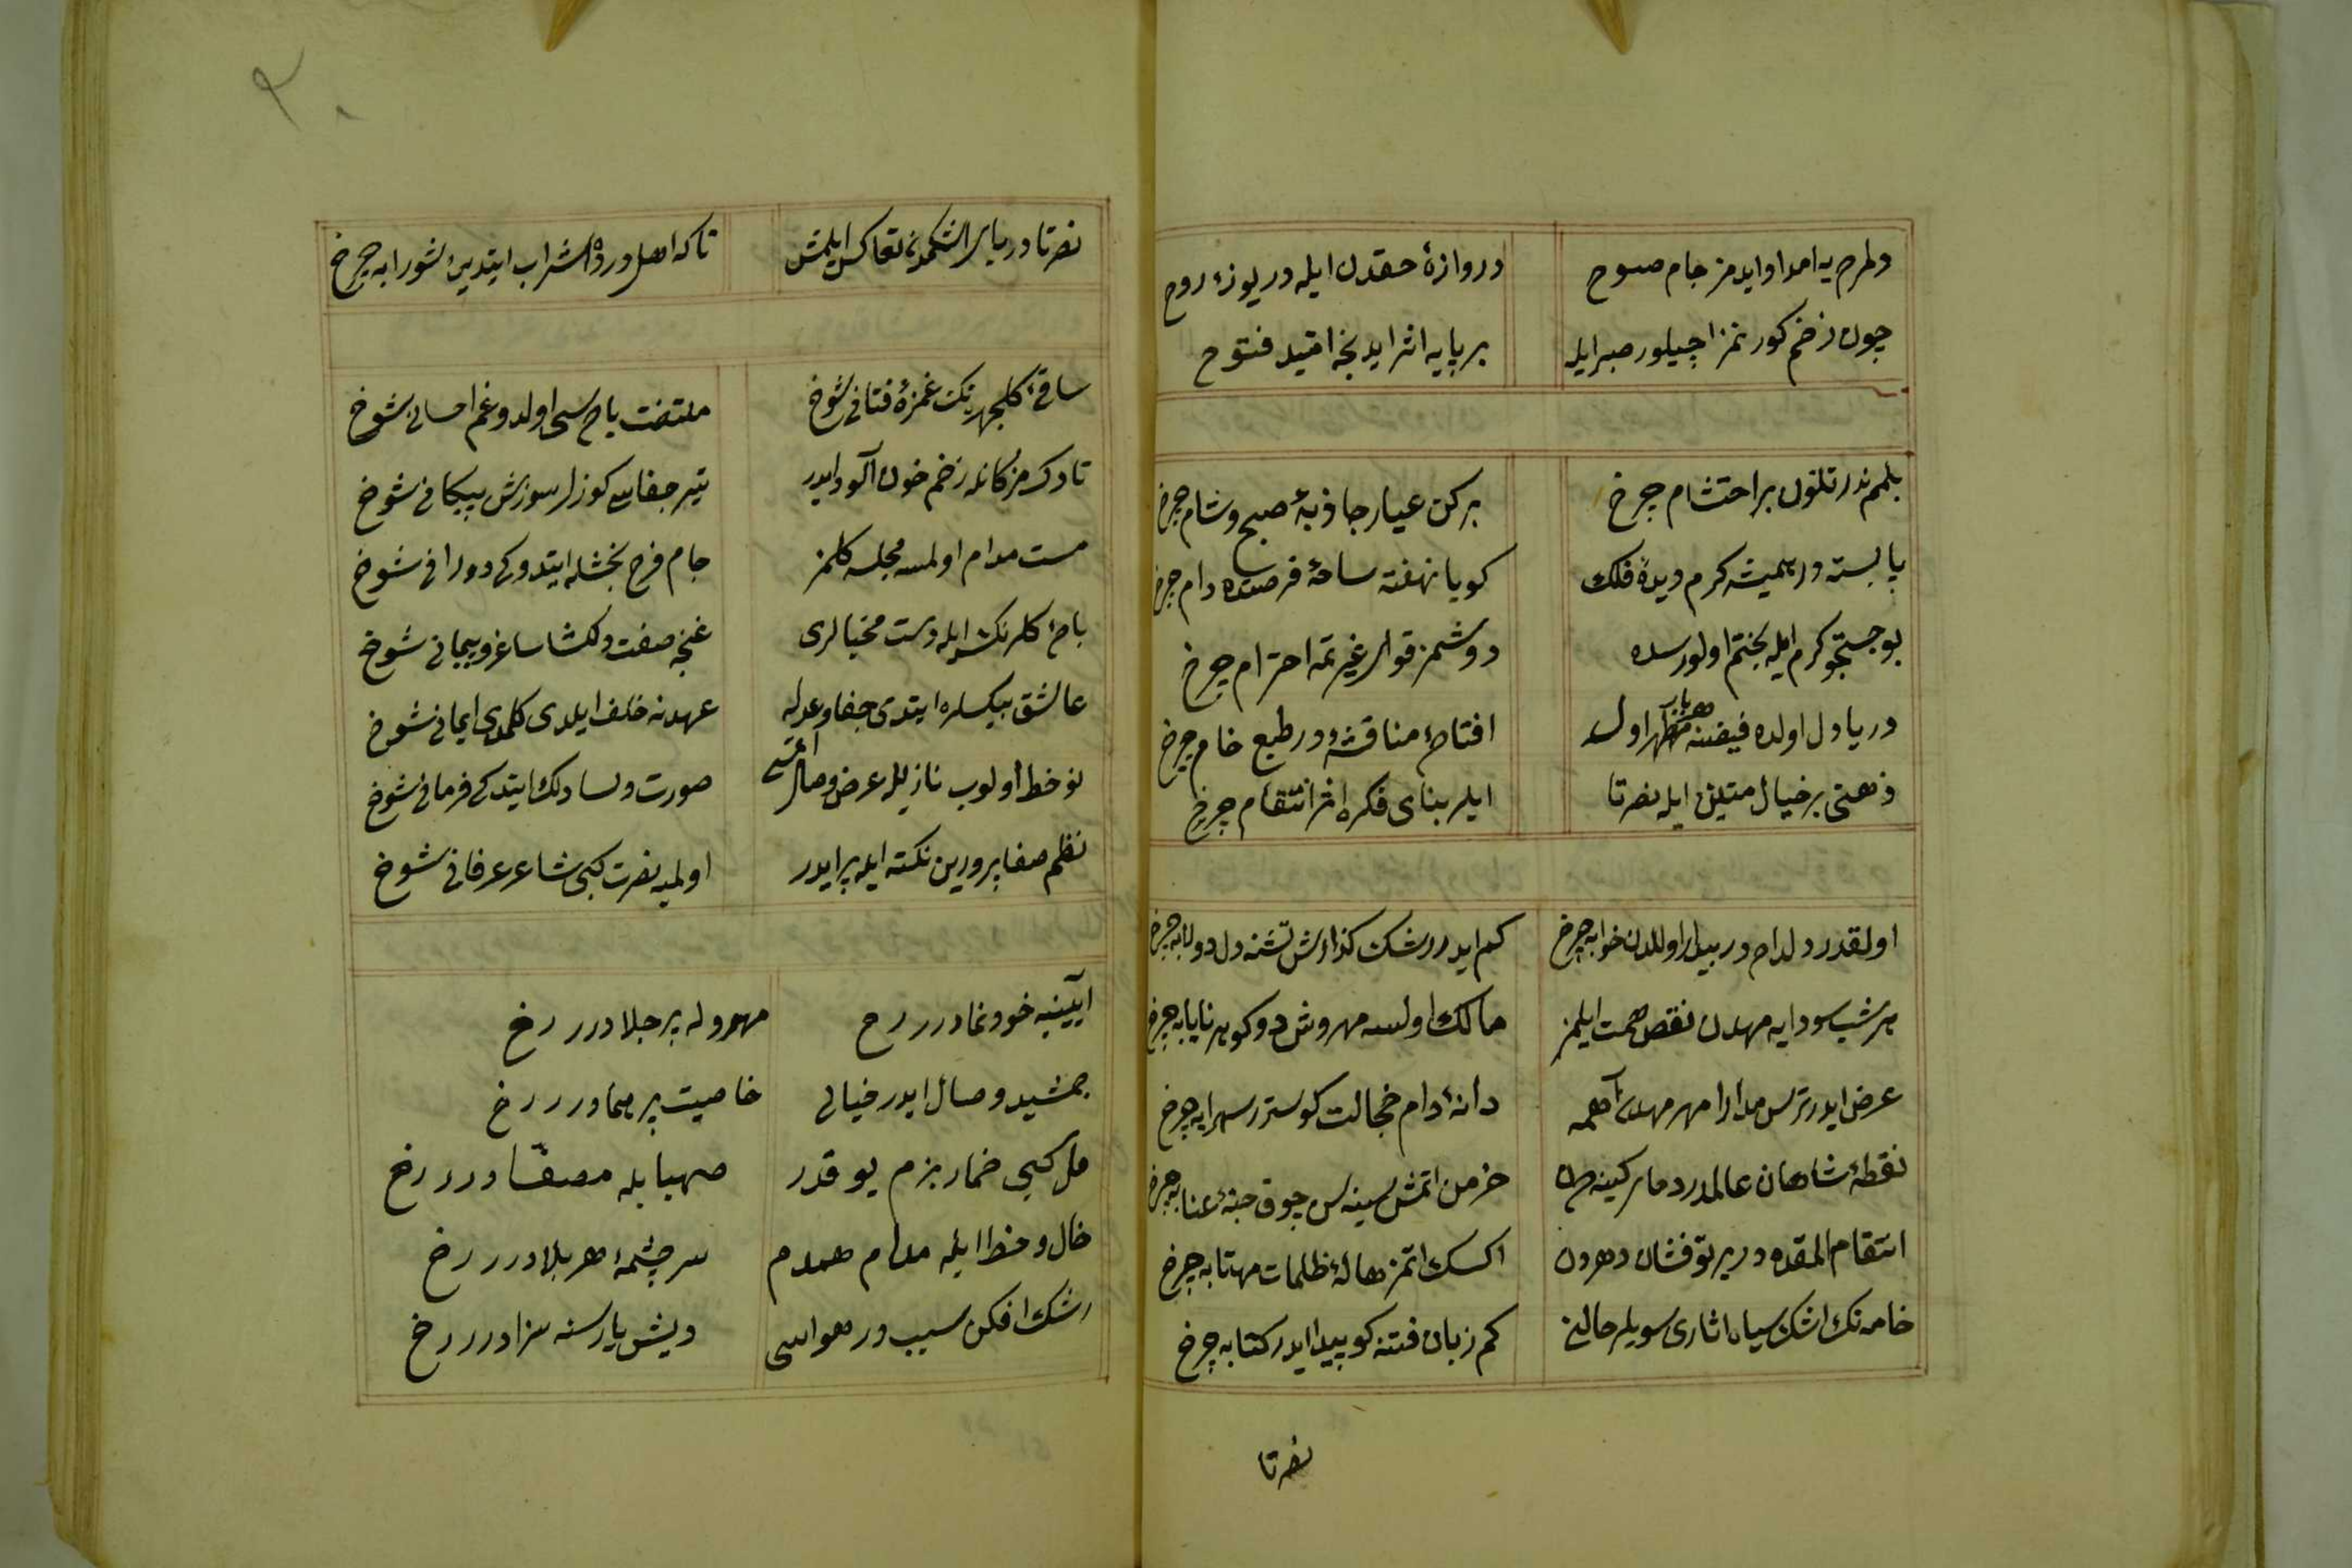 دلمرحيه امداد ايدمز جام صبوح
دروازهٔ حقدن ايله دريوزهٔ روح
چون زخم كورنمز اچيلور صبر ايله
بر پايه اثر ايد بخه اميد فتوح
بلمم ندر تلون بر احتشام چرخ
بركن عيار جاذبهٔ صبح وشام چرخ
پابسته در هميشه كرم ديدهٔ فلك
كويا نهفته ساحهٔ فرصتده دام چرخ
بو جستجو كرم ايله بختم اولورسه
دوشمز قولر غيرتمه احترام چرخ
دريا دل اولده فيضنه مظهر اوله
افتاحهٔ مناقشه در طبع خام چرخ
ذهنی بر خيال متين ايله نصرتا
ايلر بنای فكره اثر انتقام چرخ
اولقدر دلدام در بيدار اولدن خوابه چرخ
كم ايدر رشك كذارش تشنه دل دولابه چرخ
هر شب سودايه مهدن نقص همت ايلمز
مالك اولسه مهروش دو كوهر نايابه چرخ
عرض ايدر ترس مدارا مهر مهدن
دانهٔ دام خجالت كوستر سهرابه چرخ
نقطهٔ شاهان عالمدر دمار كينه
خرمن اتمش سينه سن چوق حبهٔ عنابه چرخ
انتقام المقده در پرتو فشان دهردن
اكسك اتمز هالهٔ ظلمات مهتابه چرخ
خامه نك اشك سياه اثاری سويلر حالن
كم زبان فتنه كو پيدا ايدر كتابه چرخ
نصرتا
٣٠
نصرتا دريالر اشكمدن تعاكس ايلمش
تاكه اهل درده شراب ايتديرر شورابه چرخ
ساقیٔ كلچهره نك غمزهٔ فتانی شوخ
ملتفت ياحسی اولدو غم احسانی شوخ
ناوك مژكانله زخم خون آلود ايدر
تير جفاسی كوزلر سوزش پيكانی شوخ
مست مدام اولمسه مجلسه كلمز
جام فرح بخشله ايتدوكی دورانی شوخ
باحهٔ كلرنك ايله دست مخيالری
غنچه صفت دلكشا ساغر و پيمانی شوخ
عاشق بيكسلره ايتدی جفا وعدله
عهدنه خلف ايلدی كلمدی ايمانی شوخ
نو خط اولوب نازيله عرض وصال
صورت ولسا دلك ايتدكی فرمانی شوخ
نظم صفا پرورين نكته ايله پر ايدر
اولميه نصرت كبی شاعر عرفانی شوخ
آيينه خود نمادر رخ
مهروله پر جلادر رخ
جمشيد وصال ايدر خيالی
خاصيت پر همادر رخ
مل كبی خمار بزم يوقدر
صهبايله مصفّادر رخ
خال وخط ايله مدام همدم
سر چشمهٔ هر بلادر رخ
رشك افكن سيب در هواسی
ديشن يارسنه سزادر رخ